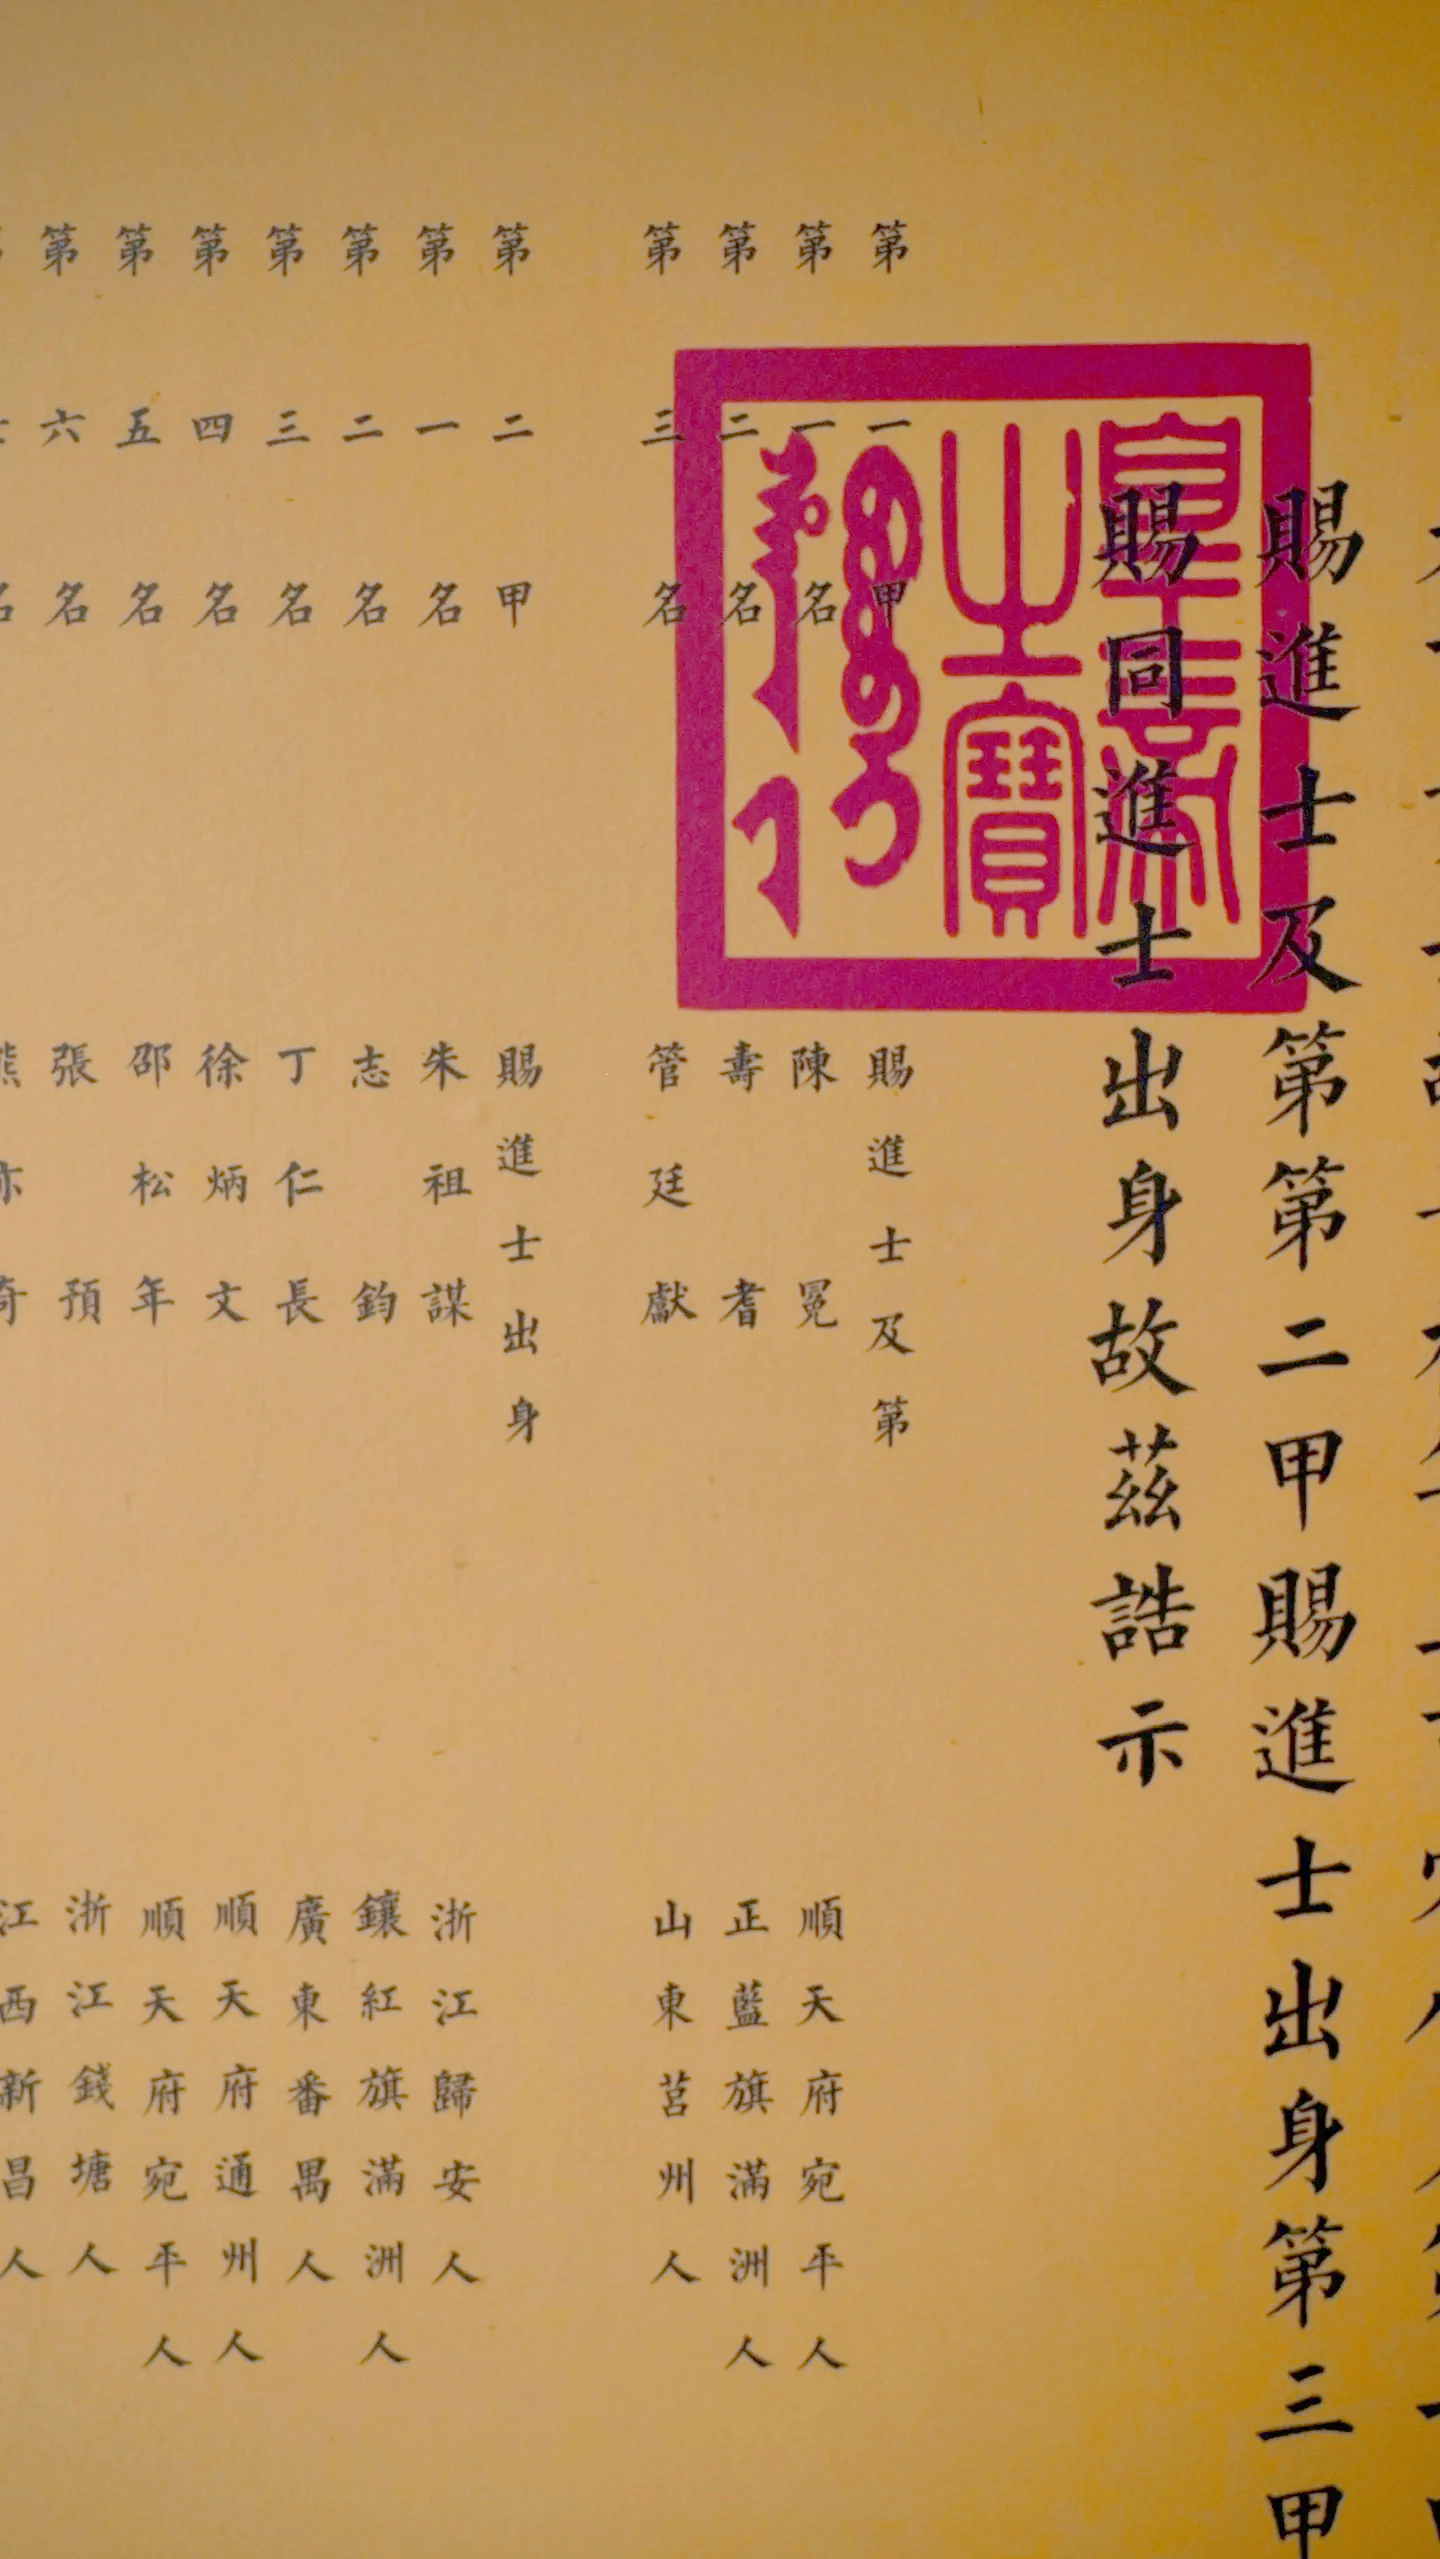 賜進士及第第二甲賜進士出身第三甲
賜同進士出身故茲誥示
皇帝之寶
第一甲 賜進士及第
第一名 陳冕 順天府宛平人
第二名 壽耆 正藍旗滿洲人
第三名 管廷獻 山東莒州人
第二甲 賜進士出身
第一名 朱祖謀 浙江歸安人
第二名 志鈞 鑲紅旗滿洲人
第三名 丁仁長 廣東番禺人
第四名 徐炳文 順天府通州人
第五名 邵松年 順天府宛平人
第六名 張預 浙江錢塘人
名 江西新昌人